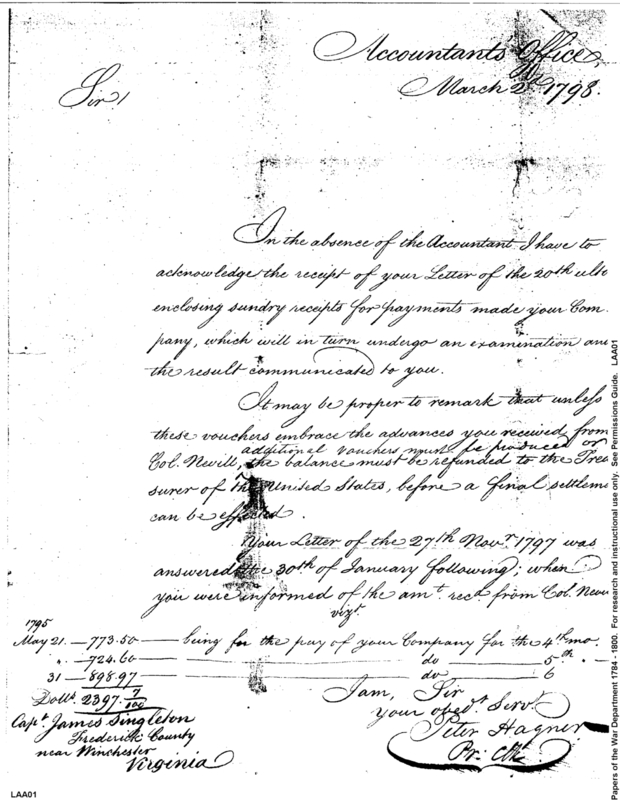 Accountants Office,
March 2d. 1798.
Sir,
In the absence of the Accountant I have to
acknowledge the receipt of your Letter of the 20th ulto
enclosing sundry receipts for payments made your Com-
pany, which will in turn undergo an examination an
the result communicated to you.
It may be proper to remark that unless
these vouchers embrace the advances you received from
additional vouchers must be produced or
Col. Nevill, the balance must be refunded to the Trea
surer of the United States, before a final settleme
can be effected.
Your Letter of the 27th Novr. 1797 was
answered the 30th of January following; when
you were informed of the amt. recd. from Col. Nevi
vizt.
1795
May 21. — 773.50 — being for the pay of your Company for the 4th mo.
" — 724.60 — do — 5th "
31 — 898.97 — do — 6
Dolls. 2397. 7/100
I am, Sir
your obedt. Servt.
Peter Hagner
Pr. Clk.
Capt. James Singleton
Frederick County
near Winchester
Virginia
LAA01
Papers of the War Department 1784 - 1800. For research and instructional use only. See Permissions Guide. LAA01